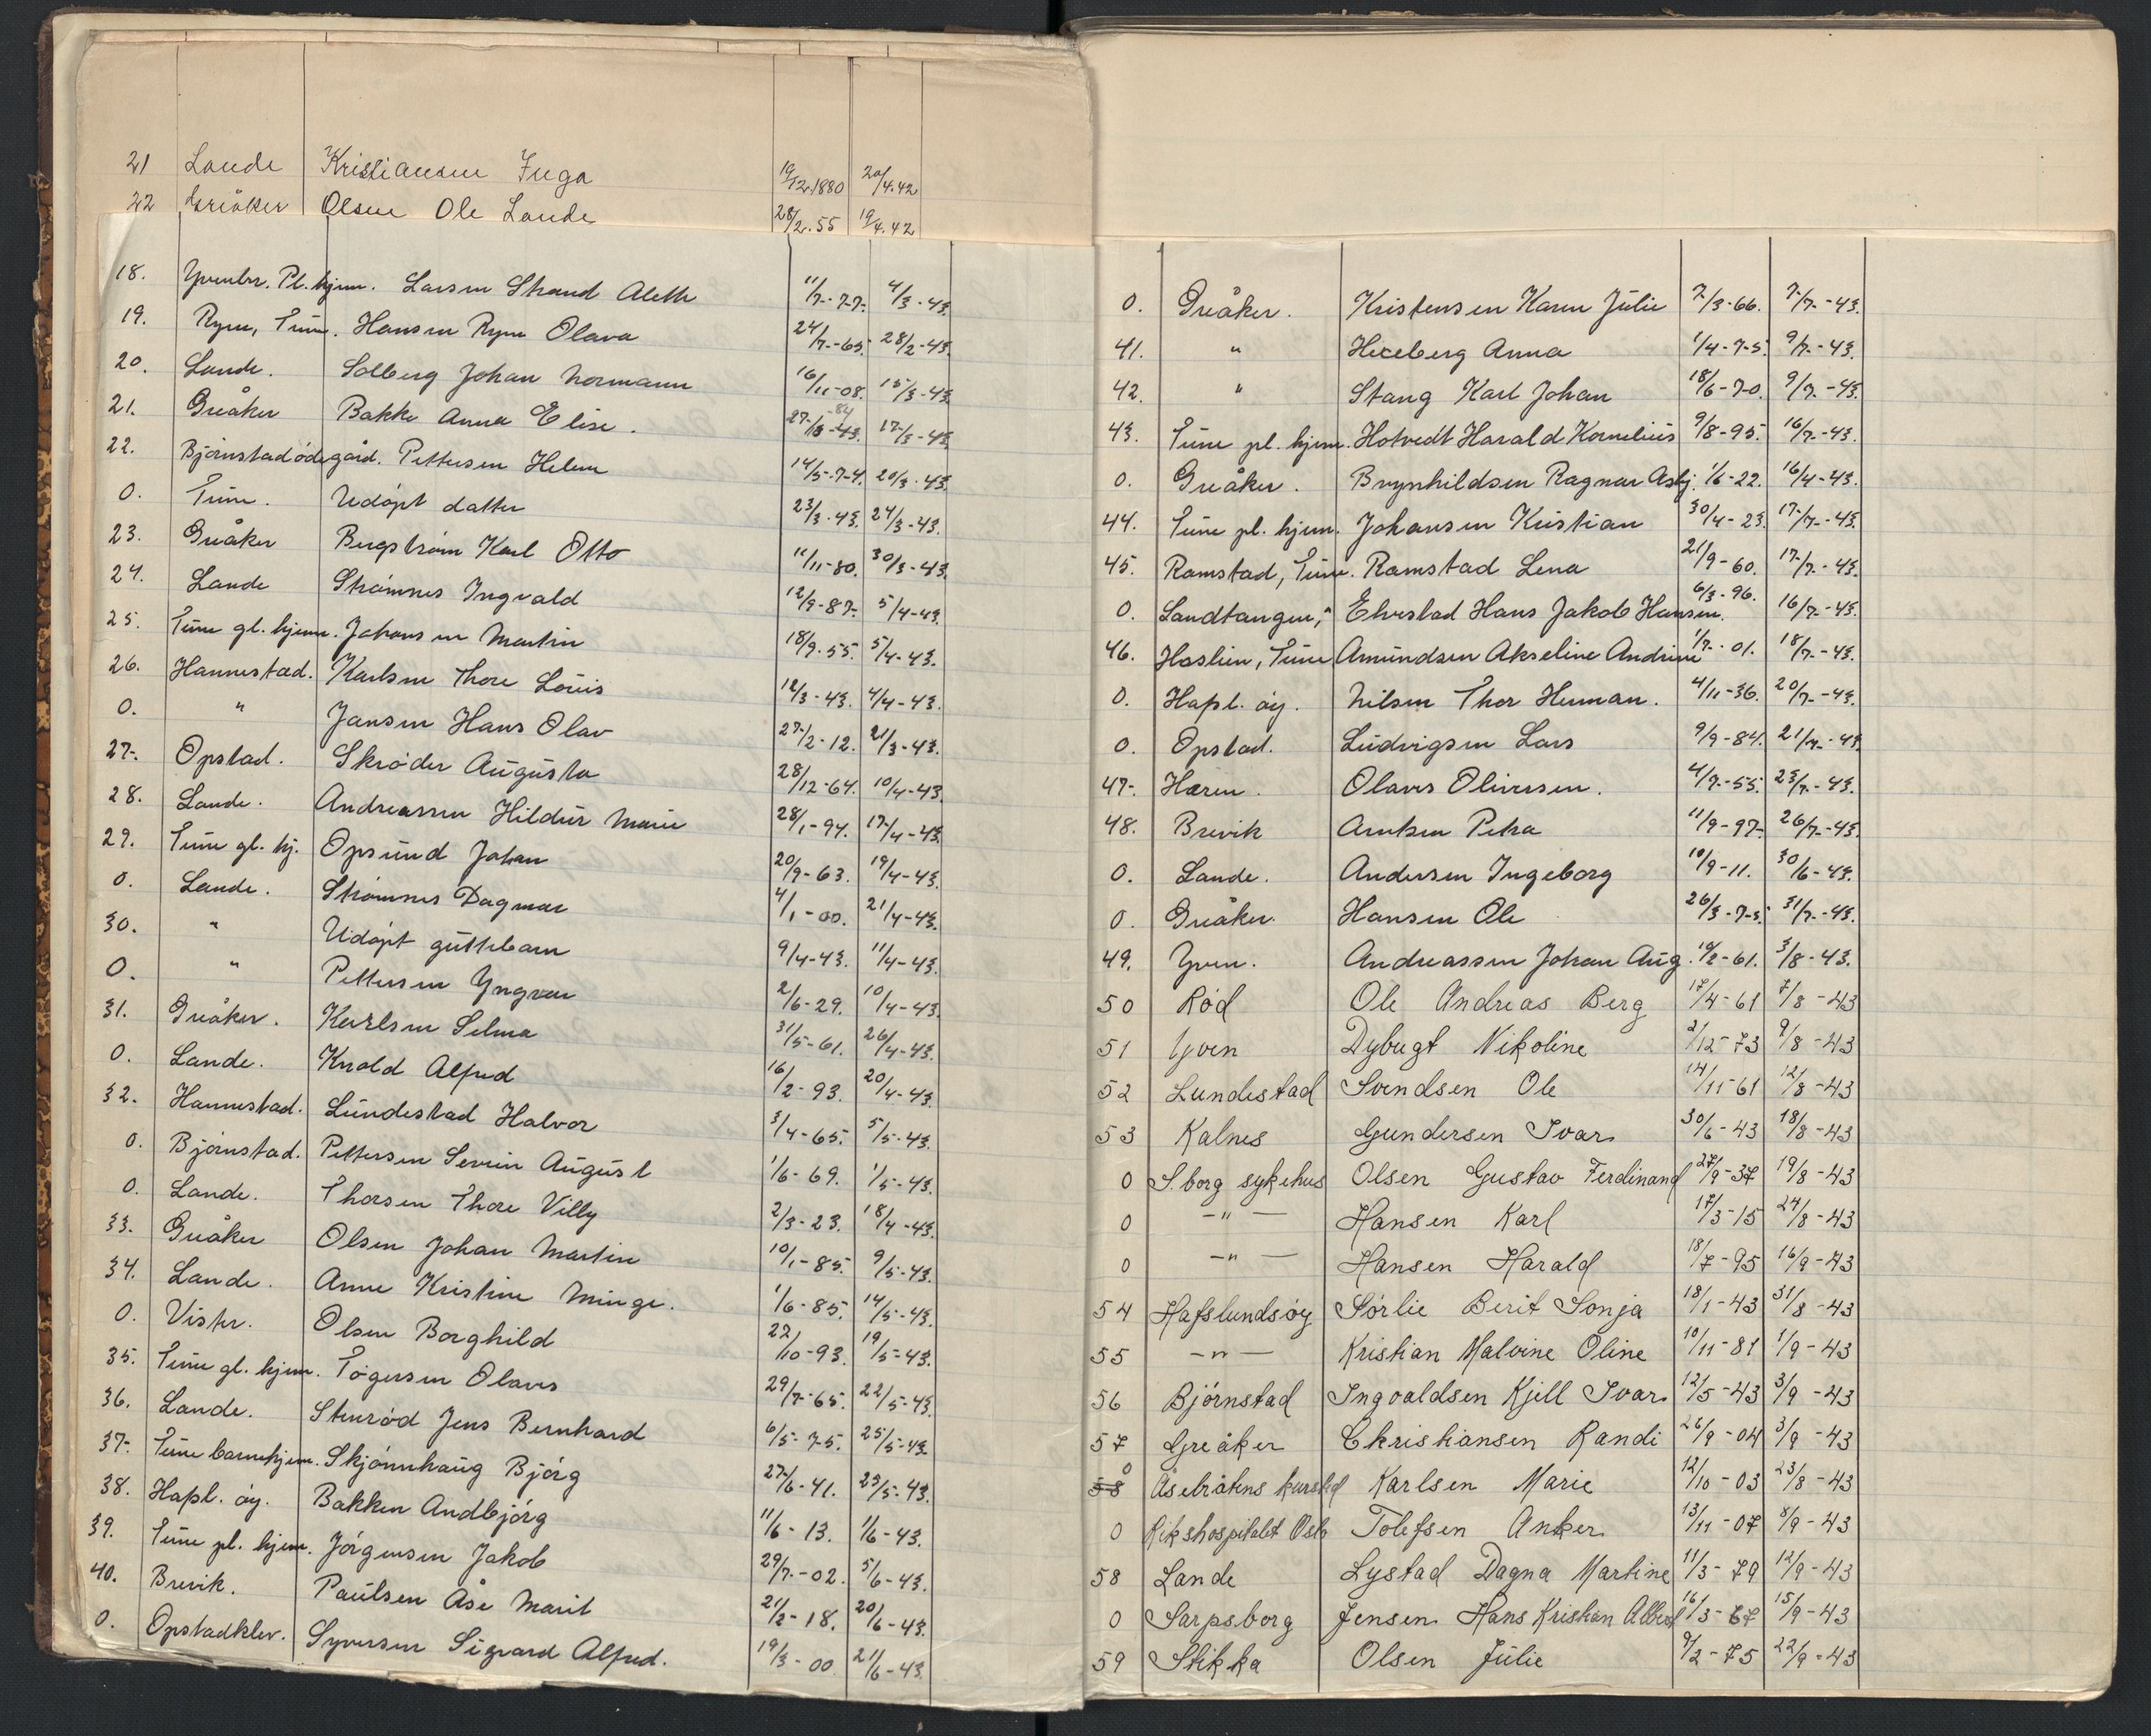 21 Lande Kristiansen Inga 19/12.1880 20/4.42
22 Greåker Olsen Ole Lande 28/2.55 19/4.42
18. Yvenbr. Pl. hjem. Larsen Strand Aleth 11/7-77. 4/3-43.
19. Ryen, Tune. Hansen Ryen Olava 24/7-65. 28/2-43.
20. Lande. Solberg Johan Normann 16/11-08. 15/3-43.
21. Greåker Bakke Anna Elise. 27/3-43. -84 17/3-43
22. Bjørnstadødegård. Pettersen Helene 14/5-74. 20/3.43.
0. Tune. Udøpt datter 23/3.43. 24/3-43.
23. Greåker Bergstrøm Karl Otto 11/11-80. 30/3-43.
24. Lande Strømnes Ingvald 12/9-87- 5/4-43.
25. Tune gl. hjem. Johansen Martin 18/9.55. 5/4-43.
26. Hannestad. Karlsen Thore Louis 12/3-43. 4/4-43.
0. " Jansen Hans Olav 27/2-12. 21/3-43.
27. Opstad. Skrøder Augusta 28/12-64. 10/4-43.
28. Lande. Andreassen Hildur Marie 28/1-94. 17/4-43.
29. Tune gl. hj. Opsund Johan 20/9-63. 19/4-43.
0. Lande. Strømnes Dagmar 4/1-00. 21/4-43.
30. " Udøpt guttebarn 9/4-43. 11/4-43.
0. " Pettersen Yngvar 2/6-29. 10/4-43.
31. Greåker. Karlsen Selma 31/5-61. 26/4-43.
0. Lande. Knold Alfred 16/2-93. 20/4-43.
32. Hannestad. Lundestad Halvor 3/4-65. 5/5-43.
0. Bjørnstad. Pettersen Severin August 1/6-69. 1/5-43.
0. Lande. Thorsen Thore Villy 2/3-23. 18/4-43.
33. Greåker Olsen Johan Martin 10/1-85. 9/5-43.
34. Lande. Anne Kristine Minge. 1/6-85. 14/5-43.
0. Vister. Olsen Borghild 22/10-93. 19/5-43.
35. Tune gl. hjem. Tøgersen Olaves 29/7-65. 22/5-43.
36. Lande. Stenrød Jens Bernhard 6/5-75. 25/5-43
37. Tune barnehjem. Skjønnhaug Bjørg 27/6-41. 29/5-43.
38. Hafsl. øy. Bakken Andbjørg 11/6-13. 1/6-43.
39. Tune pl. hjem. Jørgensen Jakob 29/7-02. 5/6-43.
40. Brevik. Paulsen Åse Marit 21/2-18. 20/6-43.
0. Opstadklev. Syversen Sigvard Alfred. 19/3-00 21/6-43.
0. Greåker. Kristensen Karen Julie 7/3-66. 7/7-43.
41. " Hexeberg Anna 1/4-75. 9/7-43.
42. " Stang Karl Johan 18/6-70. 9/7-43.
43. Tune pl. hjem. Hotvedt Harald Kornelius 9/8-95. 16/7-43.
0. Greåker. Brynhildsen Ragnar Asbj. 1/6-22. 16/4-43.
44. Tune pl. hjem. Johansen Kristian 30/4-23. 17/7-43.
45. Ramstad, Tune. Ramstad Lena 21/9-60. 17/7-43.
0. Sandtangen, " Elvestad Hans Jakob Hansen. 6/3-96. 16/7-43.
46. Haslien, Tune Amundsen Akseline Andrine 1/7-01. 18/7-43.
0. Hafsl. øy. Nilsen Thor Herman. 4/11-36. 20/7-43.
0. Opstad. Ludvigsen Lars 9/9-84. 21/7-43.
47. Haren. Olaves Oliversen. 4/7-55. 23/7-43.
48. Brevik Arntsen Petra 11/9-97- 26/7-43.
0. Lande. Andersen Ingeborg 10/9-11. 30/6-43.
0. Greåker. Hansen Ole 26/3-75. 31/7-43.
49. Yven. Andreassen Johan Aug. 10/2-61. 3/8-43.
50 Rød Ole Andreas Berg 17/4-61 7/8-43
51 Yven Dybugt Nikoline 2/12-73 9/8-43
52 Lundestad Svendsen Ole 14/11-61 12/8-43
53 Kalnes Gundersen Ivar 30/6-43 18/8-43
0 S.borg sykehus Olsen Gustav Ferdinand 27/9-37 19/8-43
0 -"- Hansen Karl 17/3-15 24/8-43
0 -"- Hansen Harald 18/7-95 16/9-43
54 Hafslundsøy Sørlie Berit Sonja 18/1-43 31/8-43
55 -"- Kristian Malvine Oline 10/11-81 1/9-43
56 Bjørnstad Ingvaldsen Kjell Ivar 12/5-43 3/9-43
57 Greåker Christiansen Randi 26/9-04 3/9-43
58 0 Åsebråtens kursted Karlsen Marie 12/10-03 23/8-43
0 Rikshospitalet Oslo Tolefsen Anker 13/11-07 8/9-43
58 Lande Lystad Dagna Martine 11/3-79 12/9-43
0 Sarpsborg Jensen Hans Kristian Albert 16/3-67 15/9-43
59 Stikka Olsen Julie 9/2-75 22/9-43